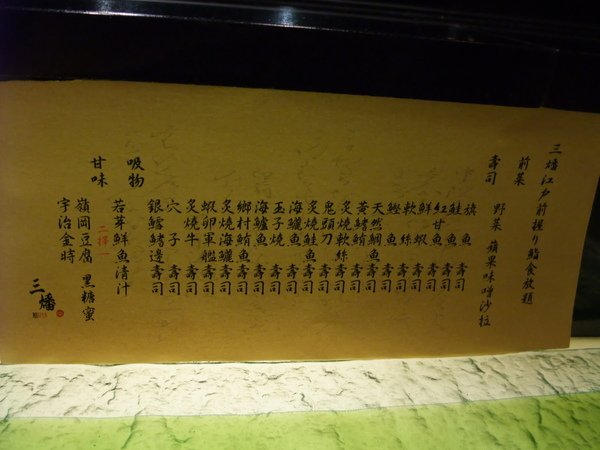 三燔江戶前握り鮨食放題
前菜
野菜 蘋果味噌沙拉
壽司
旗魚壽司
鮭魚壽司
紅甘魚壽司
鮮蝦壽司
軟絲壽司
鰹魚壽司
天然鯛魚壽司
黃鰭鮪壽司
炙燒軟絲壽司
鬼頭刀壽司
炙燒鮭魚壽司
海鱺魚壽司
玉子燒壽司
海鱸魚壽司
鄉村鮪魚壽司
炙燒海鱺壽司
蝦卵軍艦壽司
炙燒牛壽司
穴子壽司
銀鱈鰭邊壽司
吸物
若芽鮮魚清汁
甘味
二擇一
嶺岡豆腐 黑糖蜜
宇治金時
三燔